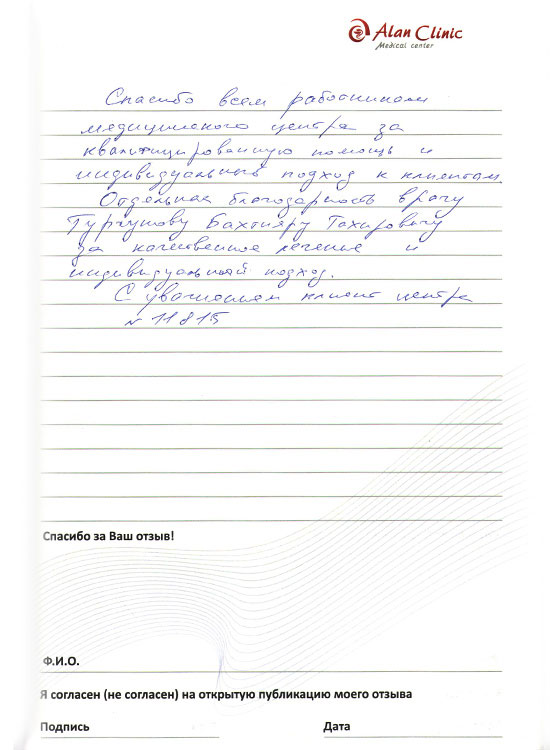 Alan Clinic
Medical center
Спасибо всем работникам
медицинского центра за
квалифицированную помощь и
индивидуальный подход к клиентам
Отдельная благодарность врачу
Тургунову Бахтияру Тахировичу
за качественное лечение и
индивидуальный подход.
С уважением клиент центра
N 11815
Спасибо за Ваш отзыв!
Ф.И.О.
Я согласен (не согласен) на открытую публикацию моего отзыва
Подпись Дата